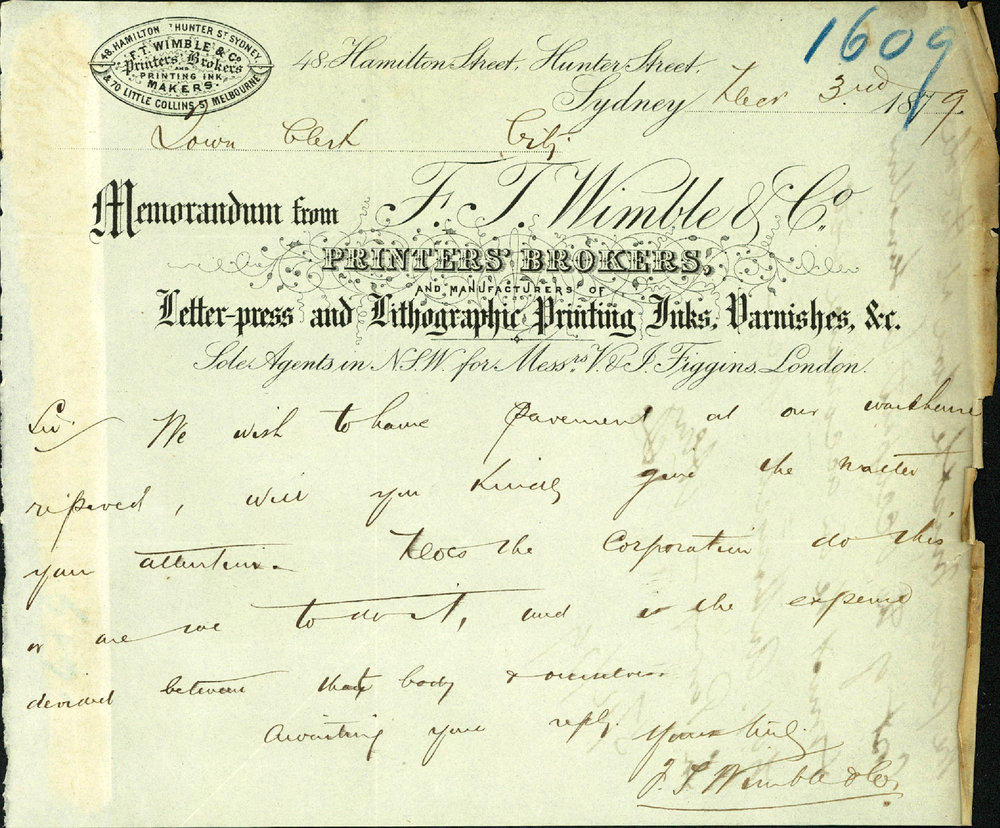 48. HAMILTON ST HUNTER ST SYDNEY
F. T. WIMBLE & Co
Printers' Brokers
AND
PRINTING INK
MAKERS.
& 70 LITTLE COLLINS ST MELBOURNE
1609
48, Hamilton Street, Hunter Street,
Sydney Decr 3rd 1879.
Town Clerk City
Memorandum from F. T. Wimble & Co.
PRINTERS' BROKERS,
AND MANUFACTURERS OF
Letter-press and Lithographic Printing Inks, Varnishes, &c.
Sole Agents in N.S.W. for Messrs. V. & J. Figgins, London.
Sir We wish to have pavement at our warehouse
repaved, will you Kindly give the matter
your attention. Does the Corporation do this
or are we to do it, and is the expense
devided between that body & ourselves
Awaiting your reply.
Yours truly.
F. T. Wimble & Co.